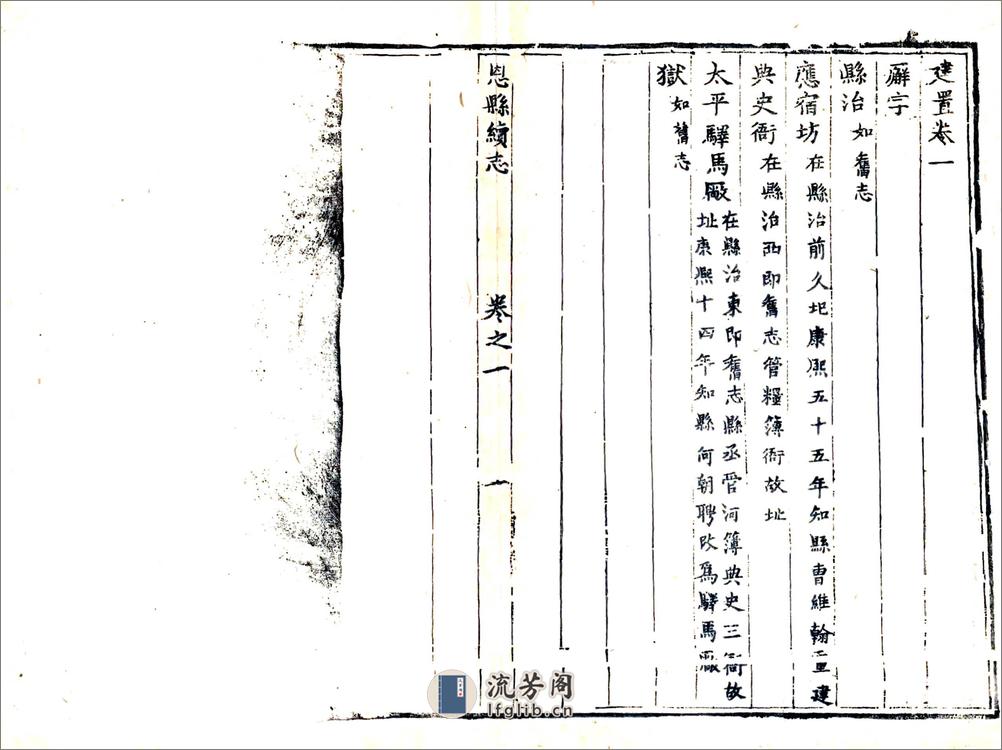 建置卷一
廨宇
縣治如舊志
應宿坊在縣治前久圮康熙五十五年知縣曹維翰重建
典史衙在縣治西即舊志管糧簿衙故址
太平驛馬厰在縣治東即舊志縣丞管河簿典史三衙故
址康熙十四年知縣何朝聘改爲驛馬厰
獄如舊志
恩縣續志 卷之一 一
流芳阁
lfglib.cn